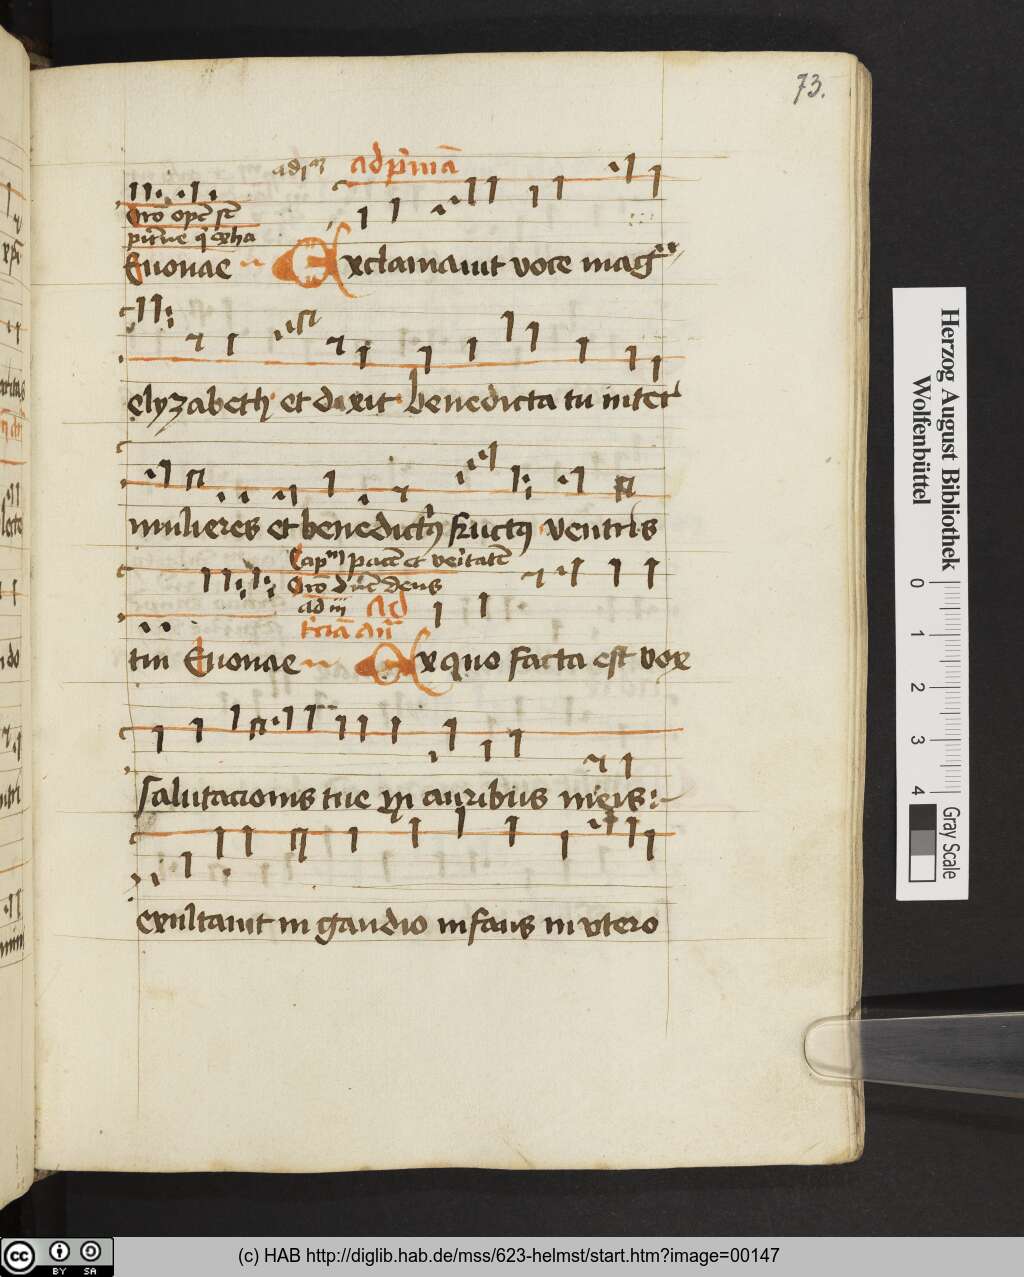 73.
ad j᷑ᵃᵐ ad p'mā
Oro opē sē
pit'ne q' ꝓha
Euouae Exclamauit voce mag
elyzabeth et dixit benedicta tu inter
mulieres et benedictꝰ fructꝰ ventris
Capᵐ pacē et veritatē
Oro dn̄e deus
ad iij Ad
t'ciā an̄
tui Euouae Ex quo facta est vox
salutacionis tue in auribus meis
exultauit in gaudio infans in vtero
Herzog August Bibliothek
Wolfenbüttel
0 1 2 3 4
Gray Scale
cc BY SA
(c) HAB http://diglib.hab.de/mss/623-helmst/start.htm?image=00147